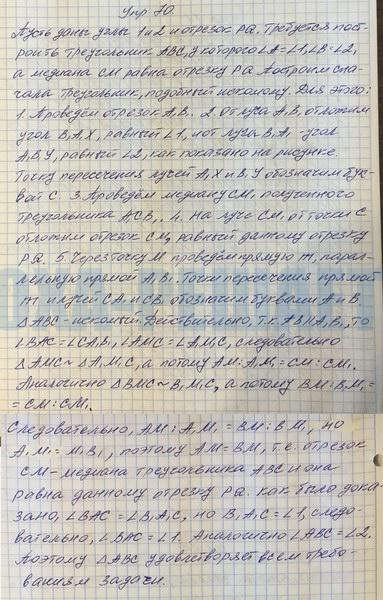 Упр 70.
Пусть даны углы 1 и 2 и отрезок PQ. Требуется пост-
роить треугольник ABC, у которого ∠A=∠1, ∠B=∠2,
а медиана CM равна отрезку PQ. Построим сна-
чала треугольник, подобный искомому. Для этого:
1. Проведём отрезок A₁B₁. 2. От луча A₁B₁ отложим
угол B₁A₁X, равный ∠1, и от луча B₁A₁ - угол
A₁B₁Y, равный ∠2, как показано на рисунке.
Точку пересечения лучей A₁X и B₁Y обозначим бук-
вой C. 3. Проведём медиану CM₁ полученного
треугольника A₁CB₁. 4. На луче CM₁ от точки C
отложим отрезок CM, равный данному отрезку
PQ. 5. Через точку M проведём прямую m, парал-
лельную прямой A₁B₁. Точки пересечения прямой
m и лучей CA₁ и CB₁ обозначим буквами A и B.
△ABC - искомый. Действительно, т.к AB||A₁B₁, то
∠BAC=∠CA₁B₁, ∠AMC=∠A₁M₁C, следовательно
△AMC~△A₁M₁C, а потому AM:A₁M₁=CM:CM₁.
Аналогично △BMC~B₁M₁C, а потому BM:B₁M₁=
=CM:CM₁.
Следовательно, AM:A₁M₁=BM:B₁M₁, но
A₁M₁=M₁B₁, поэтому AM=BM, т.е. отрезок
CM-медиана треугольника ABC и она
равна данному отрезку PQ. Как было дока-
зано, ∠BAC=∠B₁A₁C, но B₁A₁C=∠1, следо-
вательно, ∠BAC=∠1. Аналогично ∠ABC=∠2.
Поэтому △ABC удовлетворяет всем требо-
ваниям задачи.